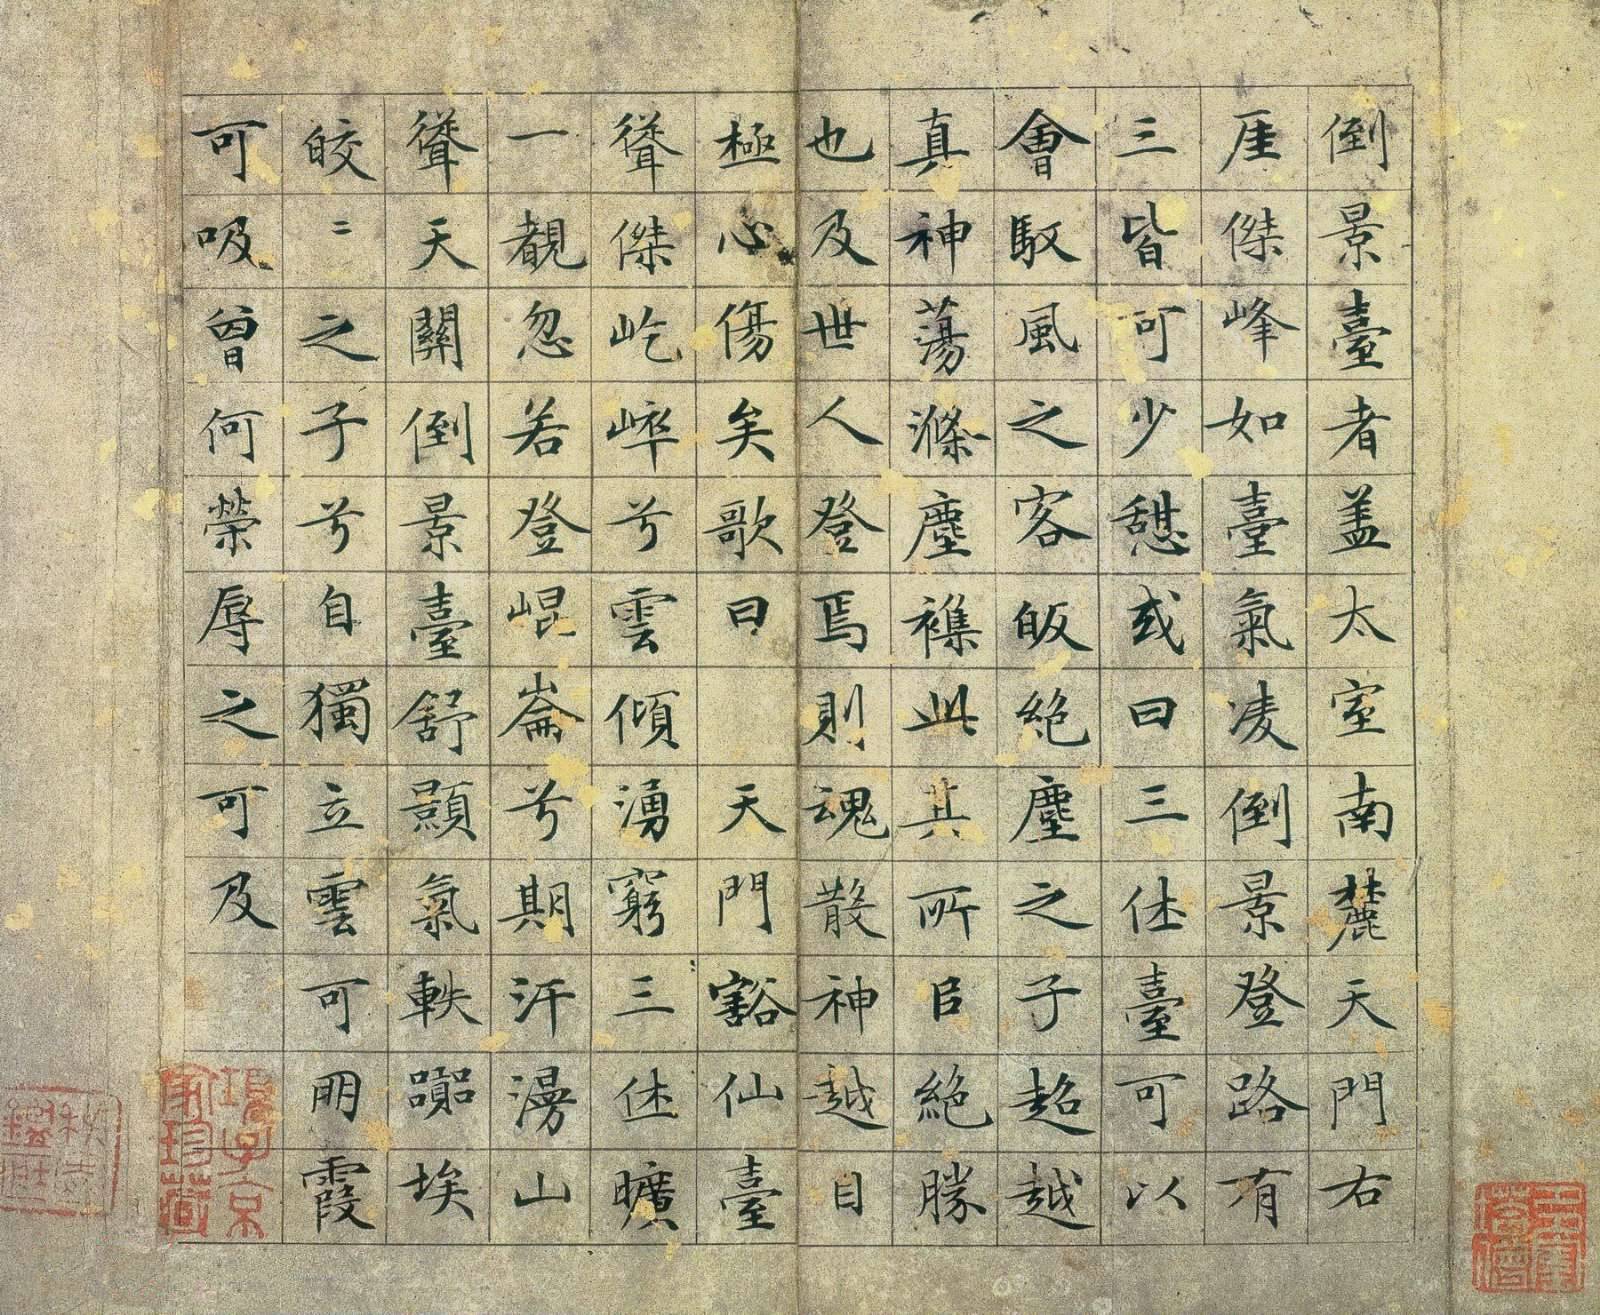 倒景臺者盖太室南麓天門右
厓傑峰如臺氣凌倒景登路有
三皆可少憩或曰三休臺可以
會馭風之客皈絕塵之子超越
真神蕩滌塵襟此其所㠯絕勝
也及世人登焉則魂散神越目
極心傷矣歌曰 天門豁仙臺
聳傑屹崒兮雲傾湧窮三休曠
一覩忽若登崐崙兮期汗漫山
聳天關倒景臺舒顥氣軼囂埃
皎〻之子兮自獨立雲可朋霞
可吸曾何榮辱之可及
項子京
家珍藏